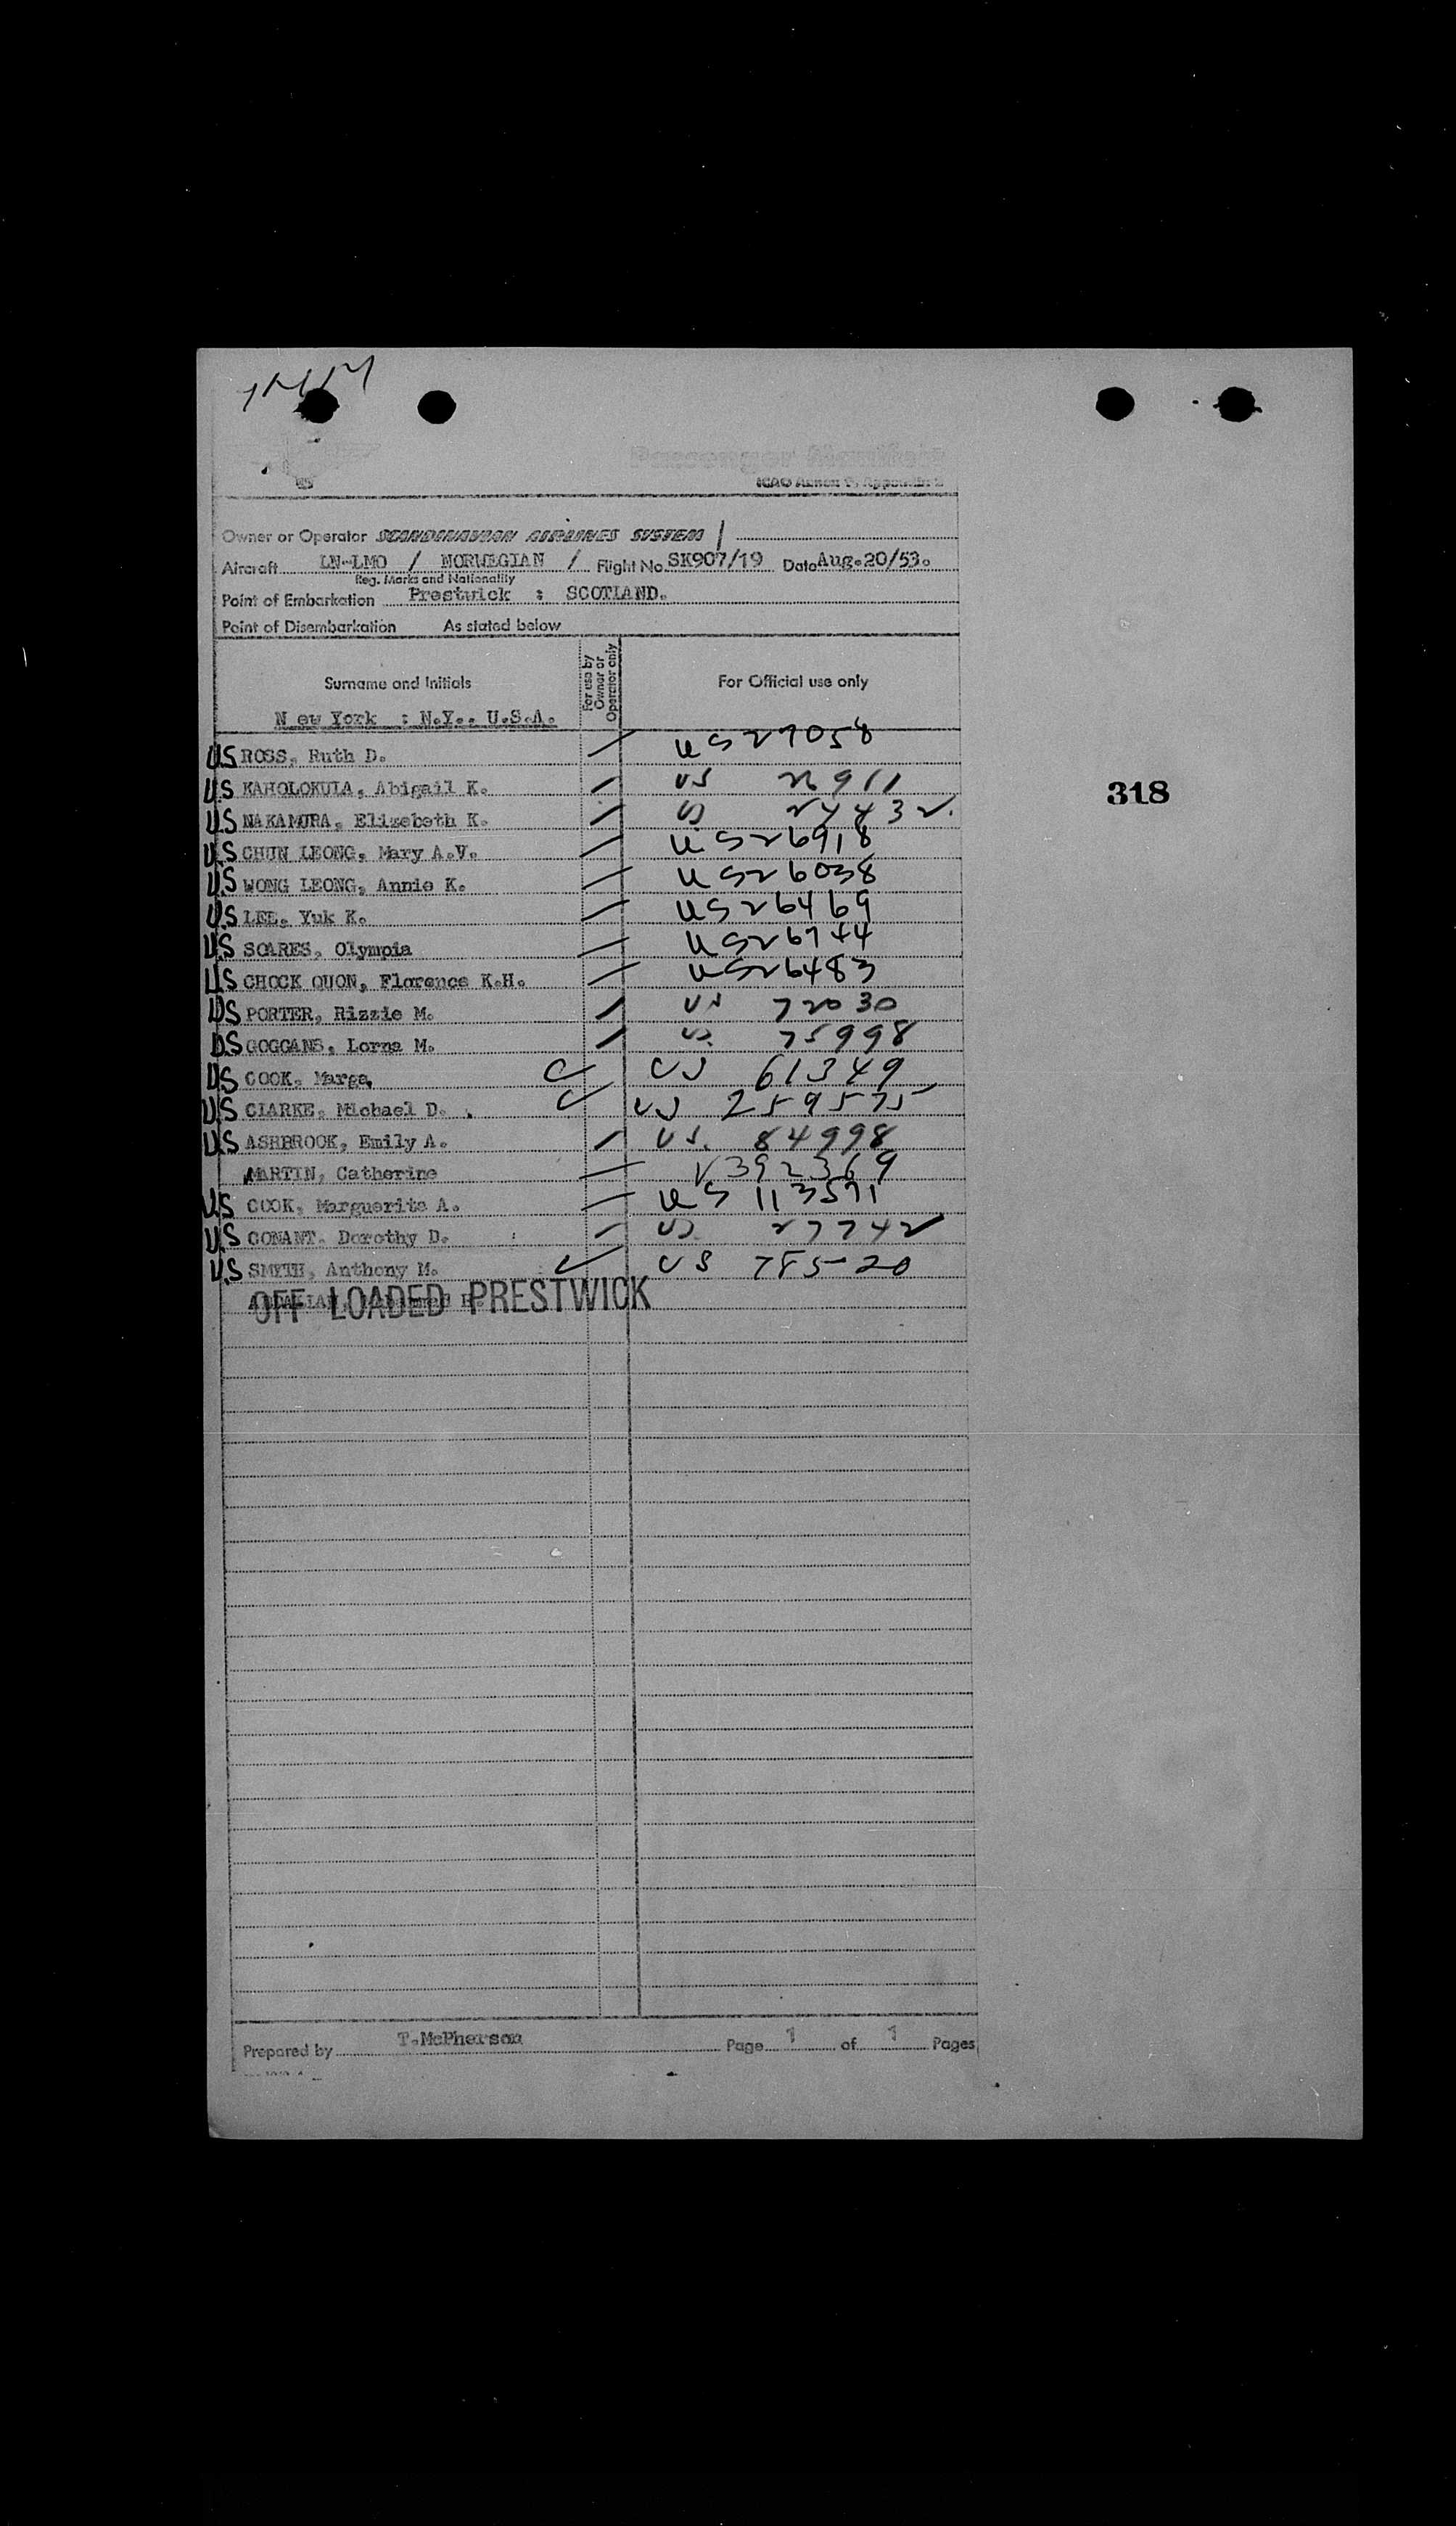 Passenger Manifest
ICAO Annex 9, Appendix 2
Owner or Operator SCANDINAVIAN AIRLINES SYSTEM
Aircraft LN-LMO / NORWEGIAN / Flight No. SK907/19 Date Aug.20/53.
Reg. Marks and Nationality
Point of Embarkation Prestwick : SCOTLAND.
Point of Disembarkation As stated below
Surname and Initials For use by Owner or Operator only For Official use only
N ew York : N.Y.. U.S.A.
US ROSS, Ruth D. US 27058
US KAHOLOKULA, Abigail K. US 26911
318
US NAKAMURA, Elizebeth K. US 24432
US CHUN LEONG, Mary A.V. US 26918
US WONG LEONG, Annie K. US 26038
US LEE, Yuk K. US 26469
US SOARES, Olympia US 26744
US CHOCK QUON, Florence K.H. US 26483
US PORTER, Rizzie M. US 72030
US GOGGANS, Lorna M. US 75998
US COOK, Marga, US 61349
US CLARKE, Michael D. US 259575
US ASHBROOK, Emily A. US. 84998
MARTIN, Catherine V392369
US COOK, Marguerite A. US 113571
US CONANT. Dorothy D. US 27742
US SMITH, Anthony M. US 78520
OFF LOADED PRESTWICK
Prepared by T.McPherson Page 1 of 1 Pages